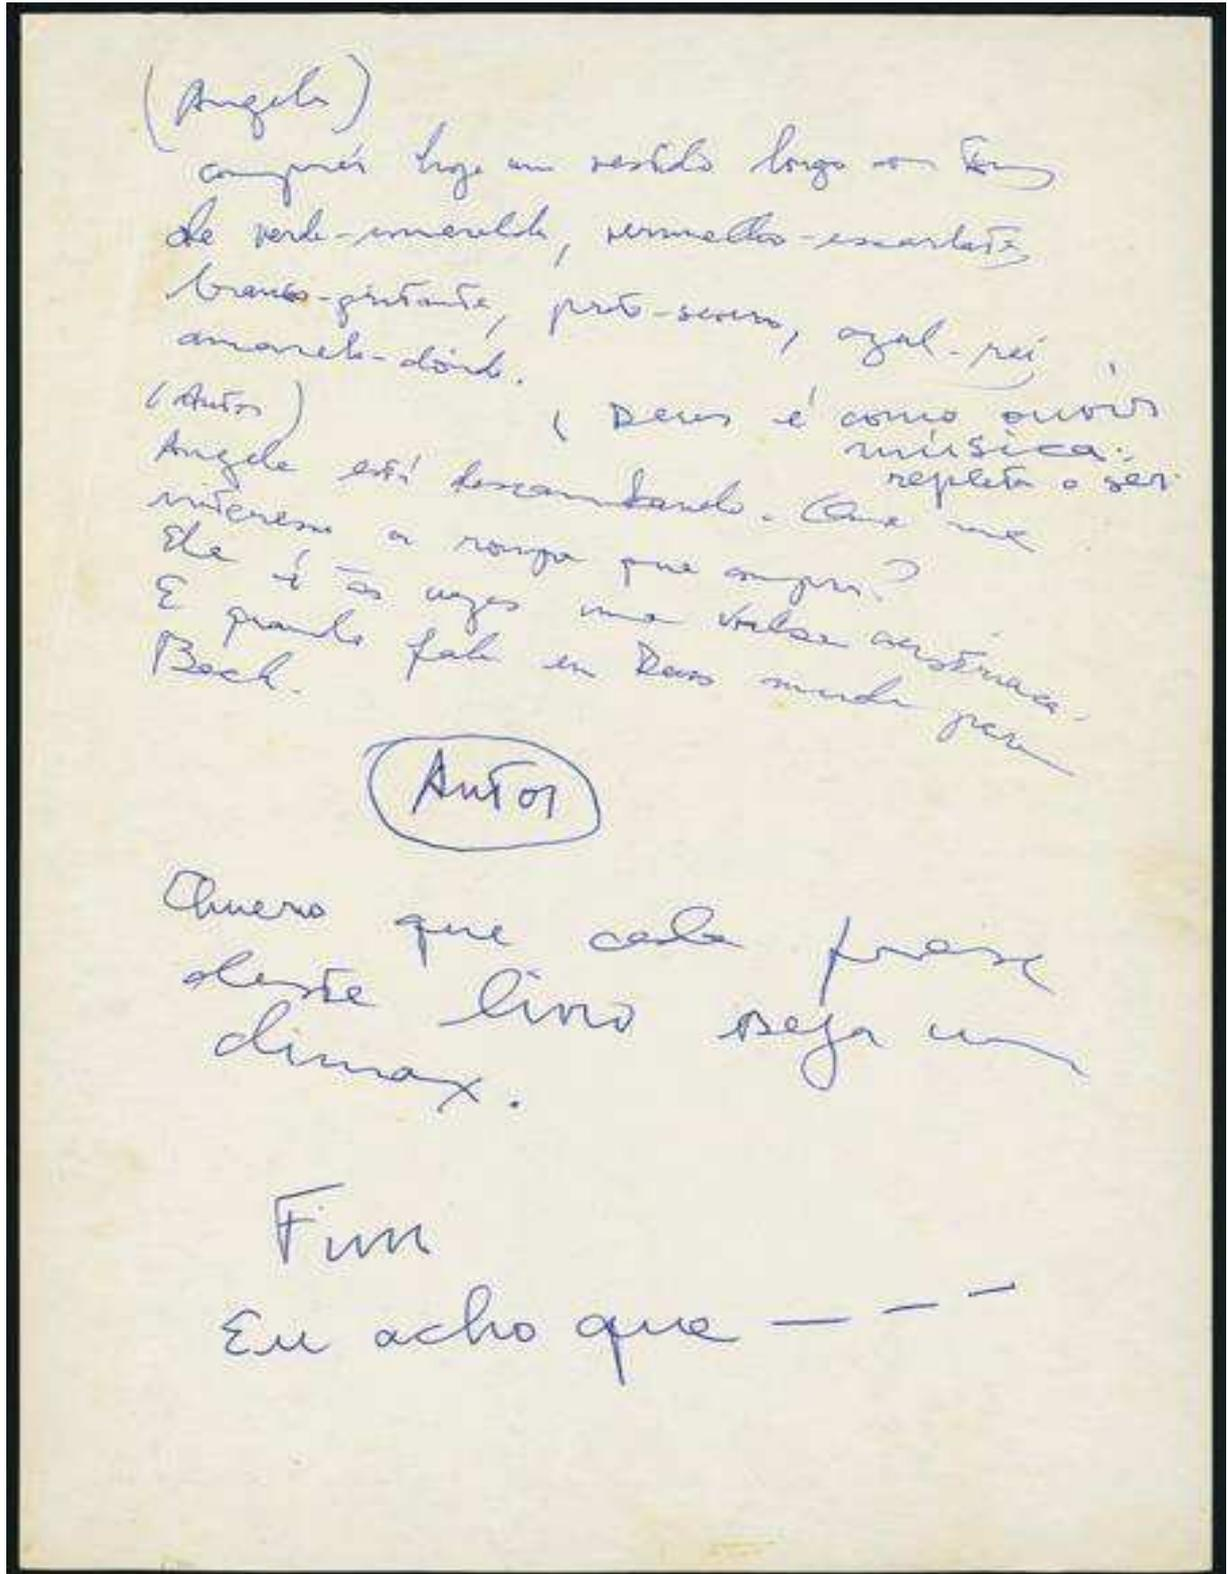 (Angela)
comprei hoje um vestido longo em tons
de verde-esmeralda, vermelho-escarlate,
branco-gritante, preto-severo, azul-rei
amarelo-dóido.
(Autor)
( Deus é como ouvir
música:
repleta o ser
Angela está descambando. Que me
interessa a roupa que compra?
Ela é às vezes uma valsa austríaca.
E quando fala em Deus muda para
Bach.
Autor
Quero que cada frase
deste livro seja um
climax.
Fim
Eu acho que — — —